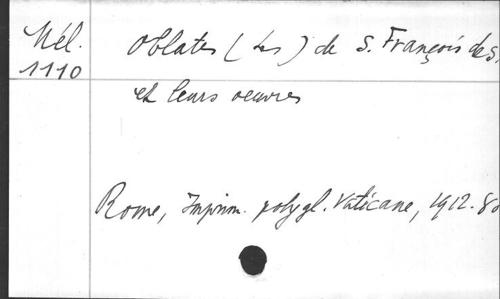 Mél. Oblates (Les) de S. François de S.
1110
et leurs oeuvres
Rome, Imprim. polygl. Vaticane, 1912. 8o